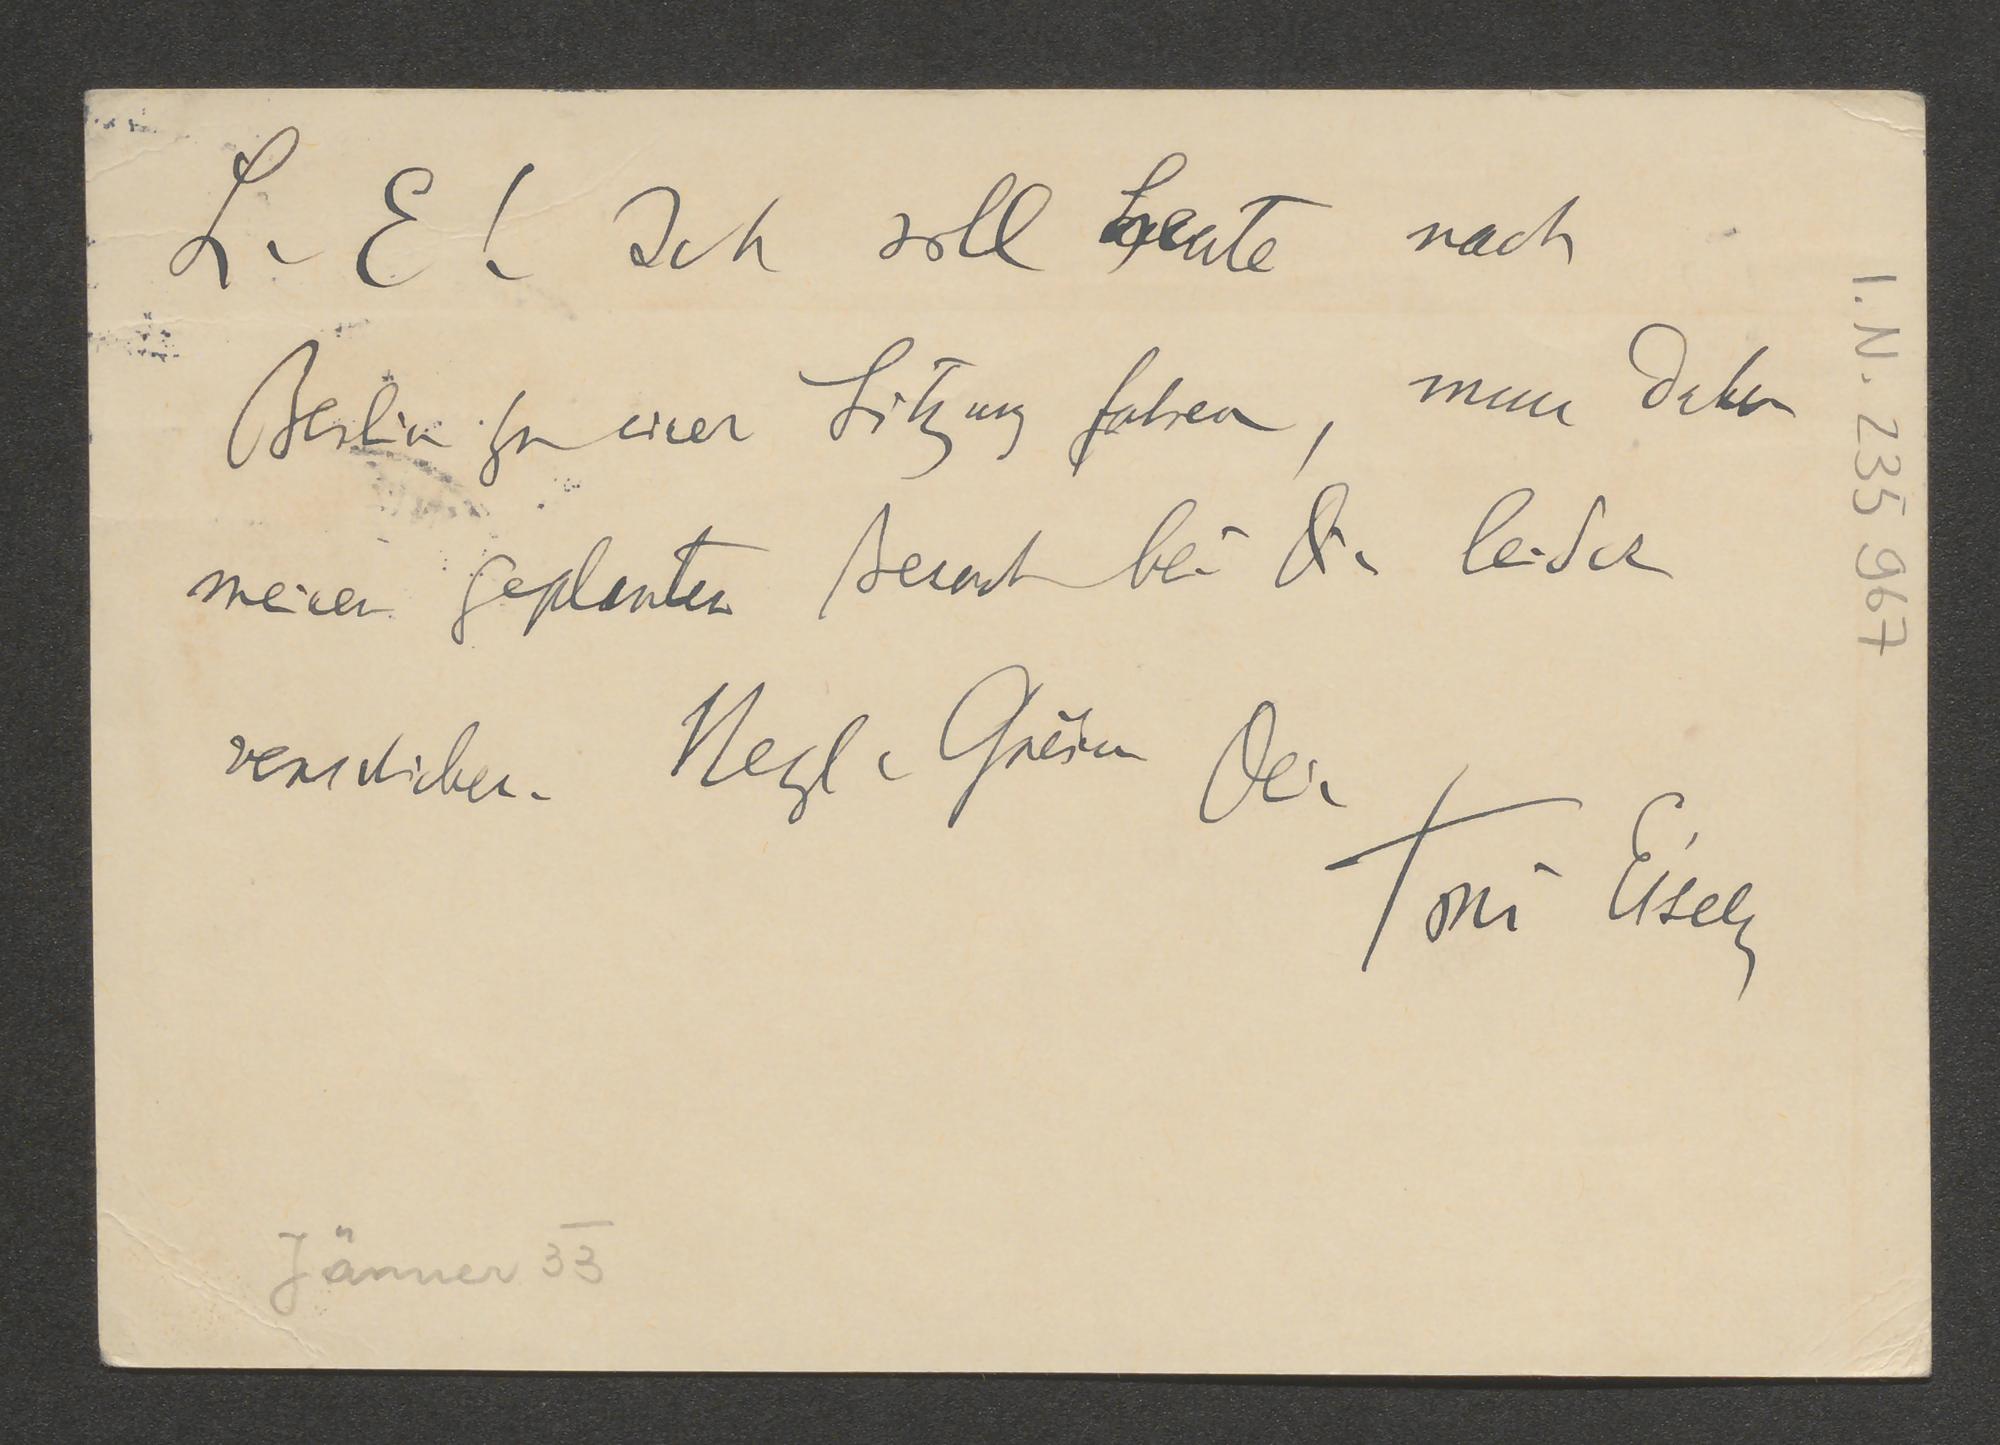 L. E! Ich soll heute nach
Berlin zu einer Sitzung fahren, muss daher
meinen geplanten Besuch bei Dir leider
verschieben. Herzl. Grüsse Dein
Toni
Jänner 33
I. N. 235 967